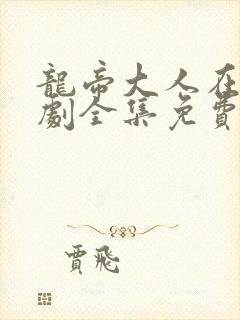 龍帝大人在
劇全集免費
賈飛